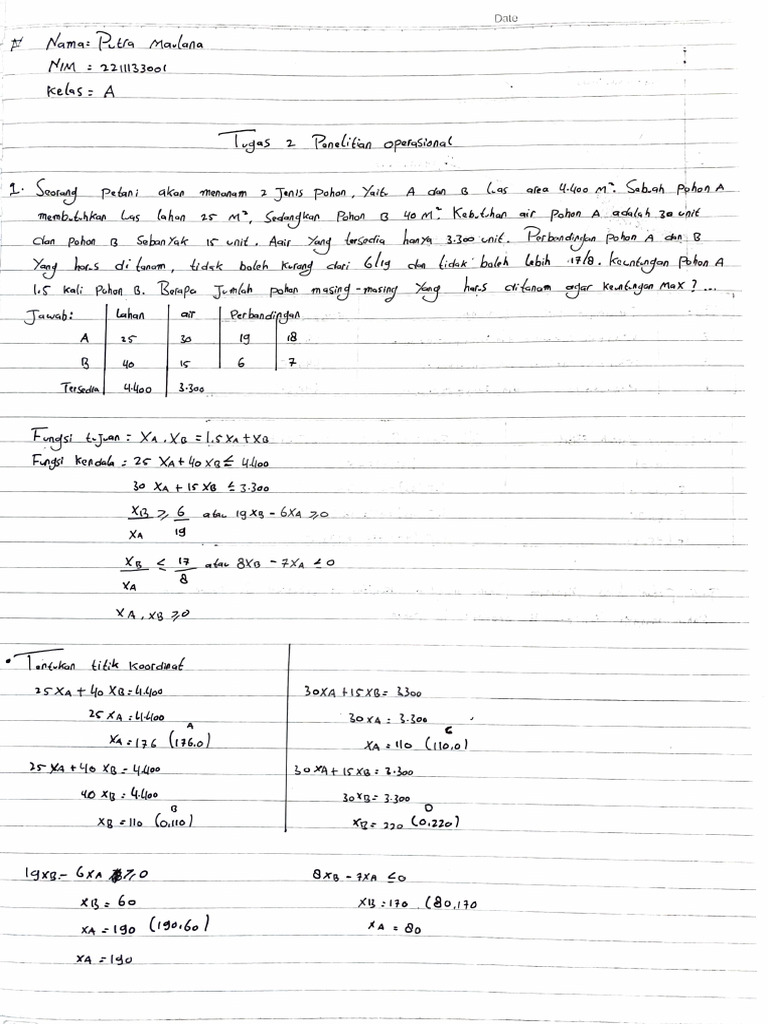 Date
Nama: Putra Maulana
NIM : 2211133001
Kelas = A
Tugas 2 Penelitian operasional
1. Seorang petani akan menanam 2 Jenis pohon, Yaitu A dan B Luas area 4.400 M². Sebuah pohon A
membutuhkan Luas lahan 25 M², Sedangkan Pohon B 40 M². Kebutuhan air Pohon A adalah 30 unit
dan pohon B Sebanyak 15 unit. Aair Yang tersedia hanya 3.300 unit. Perbandingan pohon A dan B
Yang harus ditanam, tidak boleh kurang dari 6/19 dan tidak boleh lebih 17/8. Keuntungan Pohon A
1.5 kali Pohon B. Berapa Jumlah pohon masing-masing Yang harus ditanam agar keuntungan Max? ...
Jawab: Lahan air Perbandingan
A 25 30 19 18
B 40 15 6 7
Tersedia 4.400 3.300
Fungsi tujuan = XA, XB = 1.5 XA + XB
Fungsi kendala = 25 XA + 40 XB ≤ 4.400
30 XA + 15 XB ≤ 3.300
XB/XA ≥ 6/19 atau 19XB - 6XA ≥ 0
XB/XA ≤ 17/8 atau 8XB - 7XA ≤ 0
XA, XB ≥ 0
• Tentukan titik koordinat
25 XA + 40 XB = 4.400 30XA + 15 XB = 3.300
25 XA = 4.400 30 XA = 3.300
XA = 176 A (176,0) XA = 110 C (110,0)
25 XA + 40 XB = 4.400 30 XA + 15 XB = 3.300
40 XB = 4.400 30XB = 3.300
XB = 110 B (0,110) XB = 220 D (0,220)
19XB - 6XA ≥ 0 8XB - 7XA ≤ 0
XB = 60 XB = 170 (80,170
XA = 190 (190,60) XA = 80
XA = 190